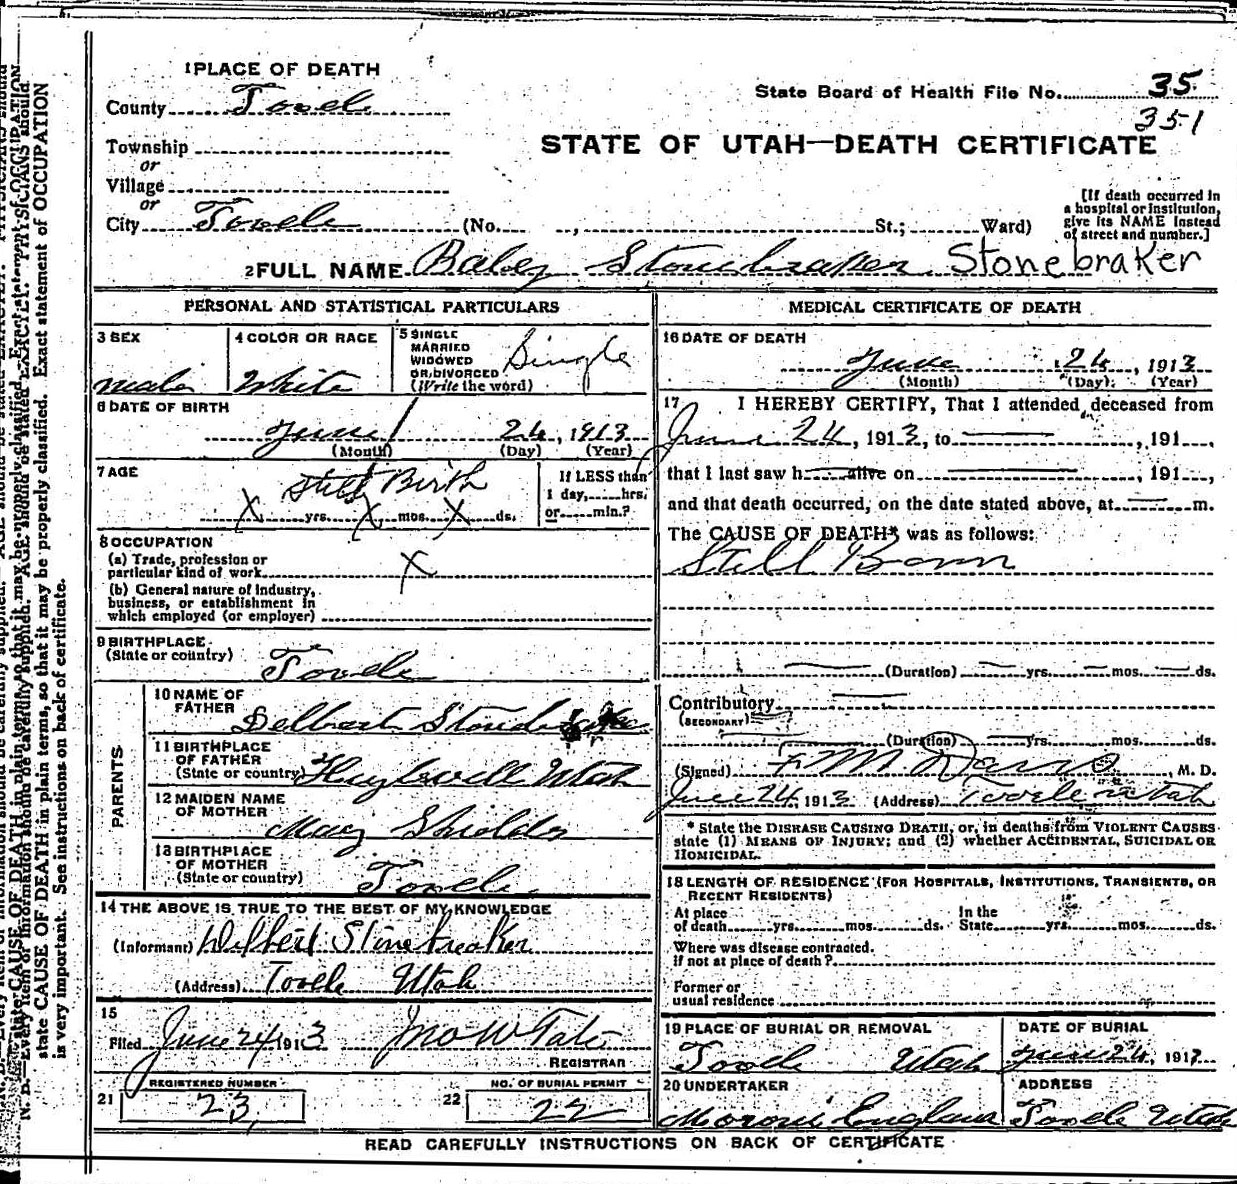 1 PLACE OF DEATH
County Tooele
State Board of Health File No. 35
351
STATE OF UTAH—DEATH CERTIFICATE
Township
or
Village
or
City Tooele (No. , St.; Ward)
[If death occurred in
a hospital or institution,
give its NAME instead
of street and number.]
2 FULL NAME Baby Stonebraker Stonebraker
PERSONAL AND STATISTICAL PARTICULARS
3 SEX
male
4 COLOR OR RACE
White
5 SINGLE
MARRIED
WIDOWED
OR DIVORCED
(Write the word)
Single
6 DATE OF BIRTH
June 24, 1913
(Month) (Day) (Year)
7 AGE
Still Birth
X yrs. X mos. X ds.
If LESS than
1 day, hrs.
or min.?
8 OCCUPATION
(a) Trade, profession or
particular kind of work X
(b) General nature of industry,
business, or establishment in
which employed (or employer)
9 BIRTHPLACE
(State or country)
Tooele
PARENTS
10 NAME OF
FATHER
Delbert
11 BIRTHPLACE
OF FATHER
(State or country) Utah
12 MAIDEN NAME
OF MOTHER
Mary Shields
13 BIRTHPLACE
OF MOTHER
(State or country) Tooele
14 THE ABOVE IS TRUE TO THE BEST OF MY KNOWLEDGE
(Informant) Delbert Stonebreaker
(Address) Tooele Utah
15
Filed June 24 1913 Jno W Tate
REGISTRAR
REGISTERED NUMBER
21 23
NO. OF BURIAL PERMIT
22 22
MEDICAL CERTIFICATE OF DEATH
16 DATE OF DEATH
June 24, 1913
(Month) (Day) (Year)
17 I HEREBY CERTIFY, That I attended deceased from
June 24, 1913, to , 191 ,
that I last saw h alive on , 191 ,
and that death occurred, on the date stated above, at m.
The CAUSE OF DEATH* was as follows:
Still Born
(Duration) yrs. mos. ds.
Contributory
(SECONDARY)
(Duration) yrs. mos. ds.
(Signed) F M Davis, M. D.
June 24, 1913 (Address) Tooele Utah
* State the DISEASE CAUSING DEATH, or, in deaths from VIOLENT CAUSES
state (1) MEANS OF INJURY; and (2) whether ACCIDENTAL, SUICIDAL OR
HOMICIDAL.
18 LENGTH OF RESIDENCE (FOR HOSPITALS, INSTITUTIONS, TRANSIENTS, OR
RECENT RESIDENTS)
At place
of death yrs. mos. ds.
In the
State yrs. mos. ds.
Where was disease contracted.
If not at place of death?
Former or
usual residence
19 PLACE OF BURIAL OR REMOVAL
Tooele Utah
DATE OF BURIAL
June 24, 1913
20 UNDERTAKER
Moroni England
ADDRESS
Tooele Utah
READ CAREFULLY INSTRUCTIONS ON BACK OF CERTIFICATE
state CAUSE OF DEATH in plain terms, so that it may be properly classified. Exact statement of OCCUPATION
is very important. See instructions on back of certificate.